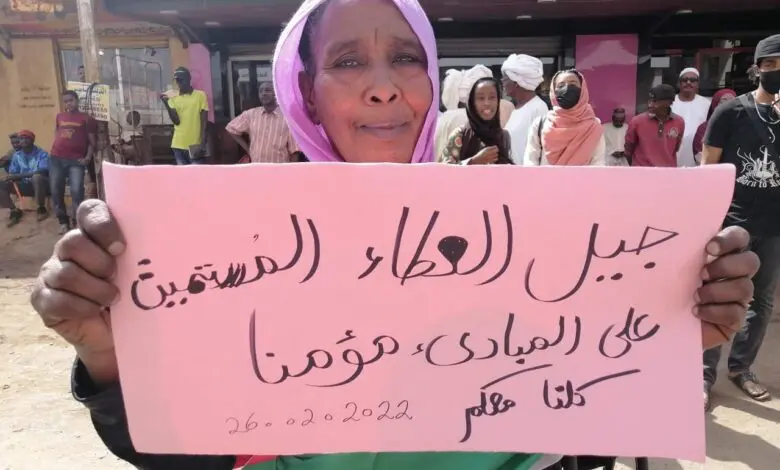 جيل العطاء المُستميت
على المبادىء مؤمنا
كلنا معكم
26.02.2022